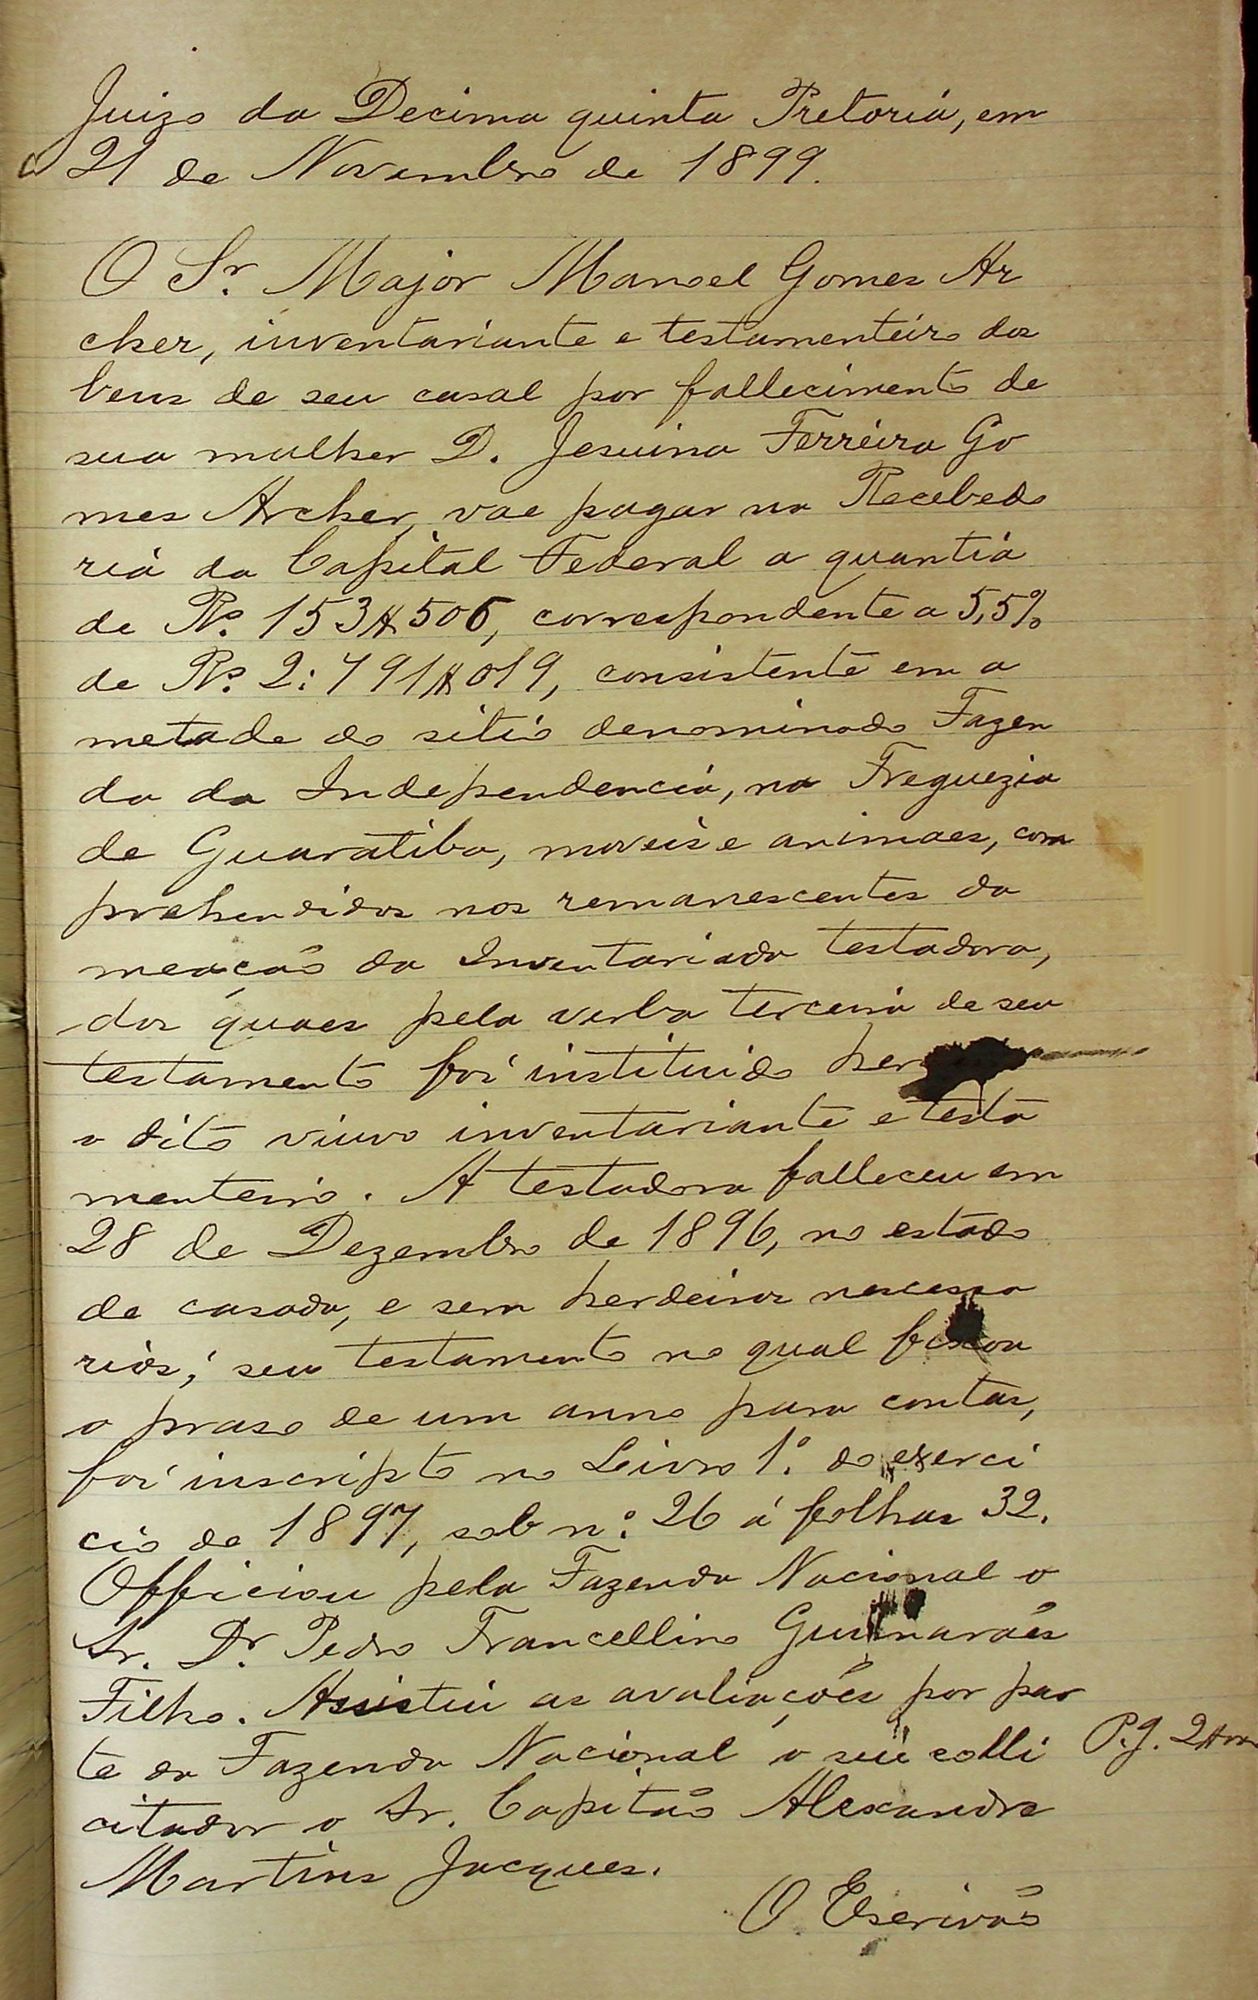 Juizo da Decima quinta Pretoria, em
21 de Novembro de 1899.
O Sr. Major Manoel Gomes Ar
cher, inventariante e testamenteiro dos
bens de seu casal por fallecimento de
sua mulher D. Jesuina Ferreira Go
mes Archer, vae pagar na Recebedo
ria da Capital Federal a quantia
de Rs. 153$506, correspondente a 5,5%
de Rs. 2:791$019, consistente em a
metade do sitio denominado Fazen
da da Independencia, na Freguezia
de Guaratiba, moveis e animaes, com
prehendidos nos remanescentes da
meação da Inventariada testadora,
dos quaes pela verba terceira de seu
testamento foi instituido
o dito viuvo inventariante e testa
menteiro. A testadora falleceu em
28 de Dezembro de 1896, no estado
de casada, e sem herdeiros necessa
rios; seu testamento no qual fixou
o praso de um anno para contas,
foi inscripto no Livro 1º. do exerci
cio de 1897, sob nº. 26 á folhas 32.
Officiou pela Fazenda Nacional o
Sr. Dr. Pedro Francellino Guimarães
Filho. Assistiu as avaliações por par
te da Fazenda Nacional o seu solli
citador o Sr. Capitão Alexandre
Martins Jacques.
P.g. 2$
O Escrivão